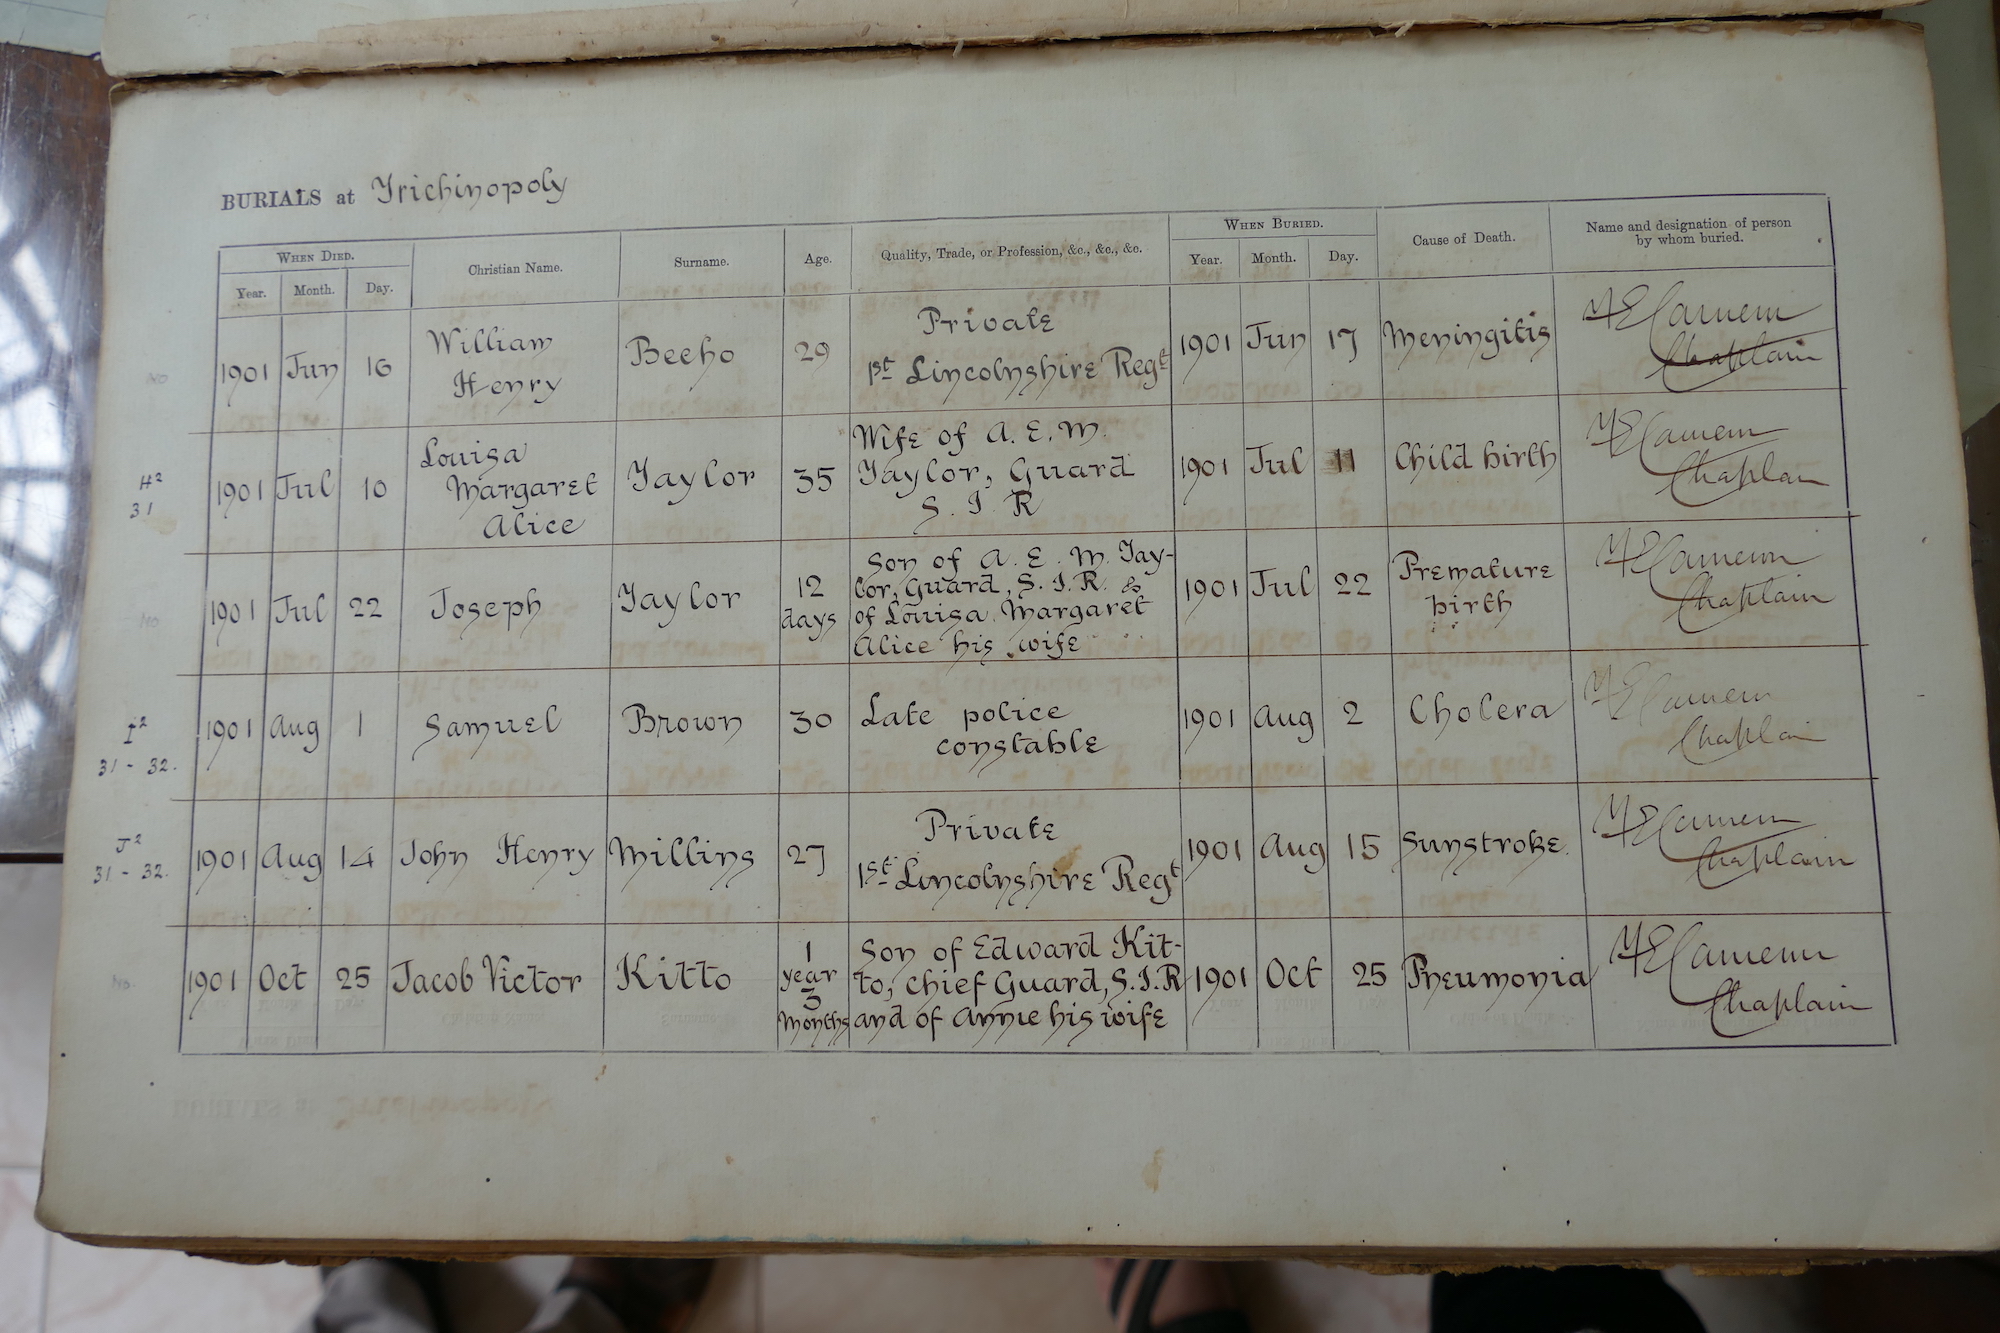 BURIALS at Trichinopoly
WHEN DIED.
Christian Name.
Surname.
Age.
Quality, Trade, or Profession, &c., &c., &c.
WHEN BURIED.
Cause of Death.
Name and designation of person
by whom buried.
Year.
Month.
Day.
Year.
Month.
Day.
No
1901
Jun
16
William
Henry
Beeho
29
Private
1st Lincolnshire Regt
1901
Jun
17
Meningitis
Chaplain
H2
31
1901
Jul
10
Louisa
Margaret
Alice
Taylor
35
Wife of A. E. M.
Taylor, Guard
S. I. R
1901
Jul
11
Child birth
Chaplain
No
1901
Jul
22
Joseph
Taylor
12
days
Son of A. E. M. Tay-
lor, Guard, S. I. R. &
of Louisa Margaret
Alice his wife
1901
Jul
22
Premature
birth
Chaplain
I2
31 - 32.
1901
Aug
1
Samuel
Brown
30
Late police
constable
1901
Aug
2
Cholera
Chaplain
J2
31 - 32.
1901
Aug
14
John Henry
Millins
27
Private
1st Lincolnshire Regt
1901
Aug
15
Sunstroke.
Chaplain
No.
1901
Oct
25
Jacob Victor
Kitto
1
year
3
months
Son of Edward Kit-
to, Chief Guard, S. I. R
and of Annie his wife
1901
Oct
25
Pneumonia
Chaplain